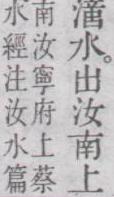 水。出汝南上
南汝寧府上蔡
水經注汝水篇